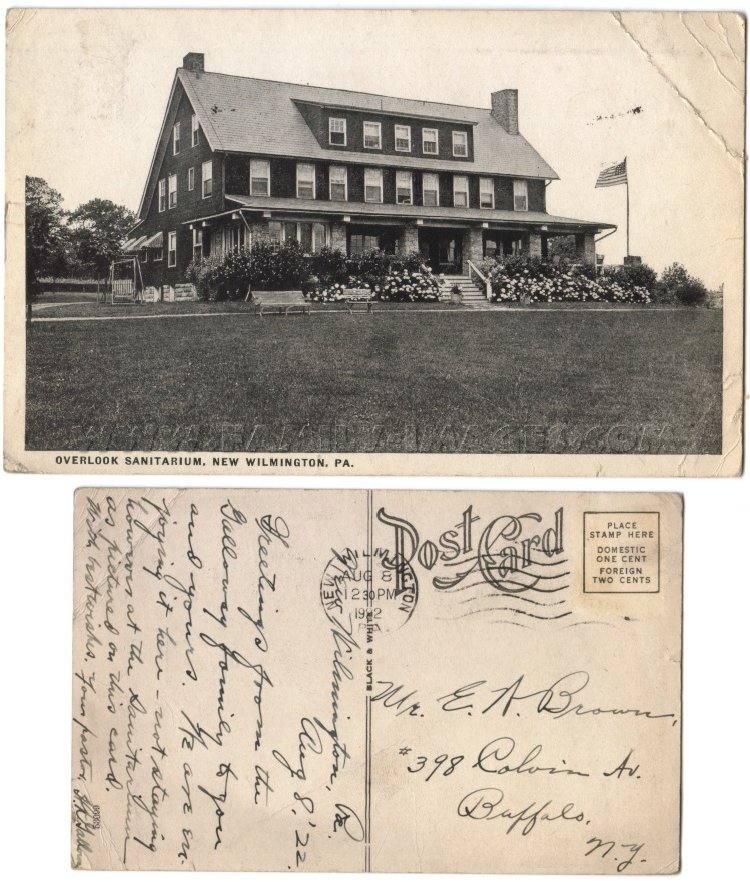 OVERLOOK SANITARIUM, NEW WILMINGTON, PA.
Post Card
PLACE
STAMP HERE
DOMESTIC
ONE CENT
FOREIGN
TWO CENTS
NEW WILMINGTON
AUG 8
12 30 PM
1922
PA.
BLACK & WHITE
New Wilmington, Pa.
Aug 8, '22.
Greetings from the
Galloway family to you
and yours. We are en-
joying it here - not staying
however at the Sanitarium
as pictured on this card.
With best wishes, your pastor,
Mr. E. A. Brown,
#398 Colvin Av.
Buffalo,
N.Y.